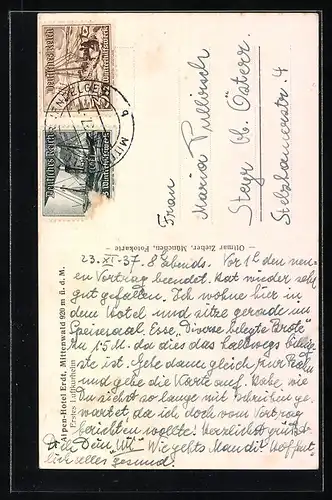 Deutsches Reich
Winterhilfswerk
Deutsches Reich
Winterhilfswerk
MITT
Frau
Maria
Steyr Ob. Österr.
Stelzhamerstr. 4
– Ottmar Zieher, München, Fotokarte –
Alpen-Hotel Erdt, Mittenwald 920 m ü. d. M.
Erstes Luftkurheim
23. XI. 37. 8 Abends. Vor 1 h den neu-
en Vortrag beendet. Hat wieder sehr
gut gefallen. Ich wohne hier in
dem Hotel und sitze gerade im
Speisesaal. Esse „Diverse belegte Brote“
Mk 1.50 M. da dies das halbwegs billig-
ste ist. Gehe dann gleich zur Bahn
und gebe die Karte auf. Habe, wie
Du siehst so lange mit schreiben ge-
wartet, da ich doch vom Vortrag
berichten wollte. Herzlichst grüßt
Dich Dein Wie gehts Mandi? Hoffent-
lich alles gesund.